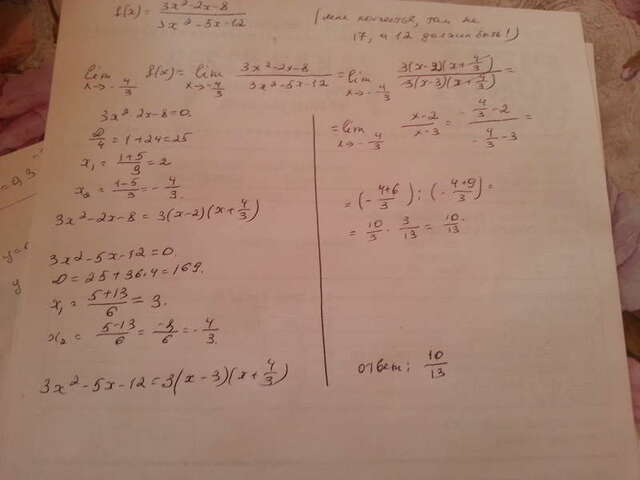 f(x) = (3x²-2x-8)/(3x²-5x-12) (мне кажется, там не
17, а 12 должно быть!)
lim x→-4/3 f(x) = lim x→-4/3 (3x²-2x-8)/(3x²-5x-12) = lim x→-4/3 3(x-3)(x+4/3)/3(x-3)(x+4/3) =
3x²-2x-8=0.
D/4 = 1+24=25
x₁ = (1+5)/3 = 2
x₂ = (1-5)/3 = -4/3.
3x²-2x-8 = 3(x-2)(x+4/3)
3x²-5x-12=0.
D = 25+36·4 = 169.
x₁ = (5+13)/6 = 3.
x₂ = (5-13)/6 = -8/6 = -4/3.
3x²-5x-12 = 3(x-3)(x+4/3)
= lim x→-4/3 (x-2)/(x-3) = (-4/3-2)/(-4/3-3) =
= (-(4+6)/3) : (-(4+9)/3) =
= 10/3 · 3/13 = 10/13.
ответ: 10/13